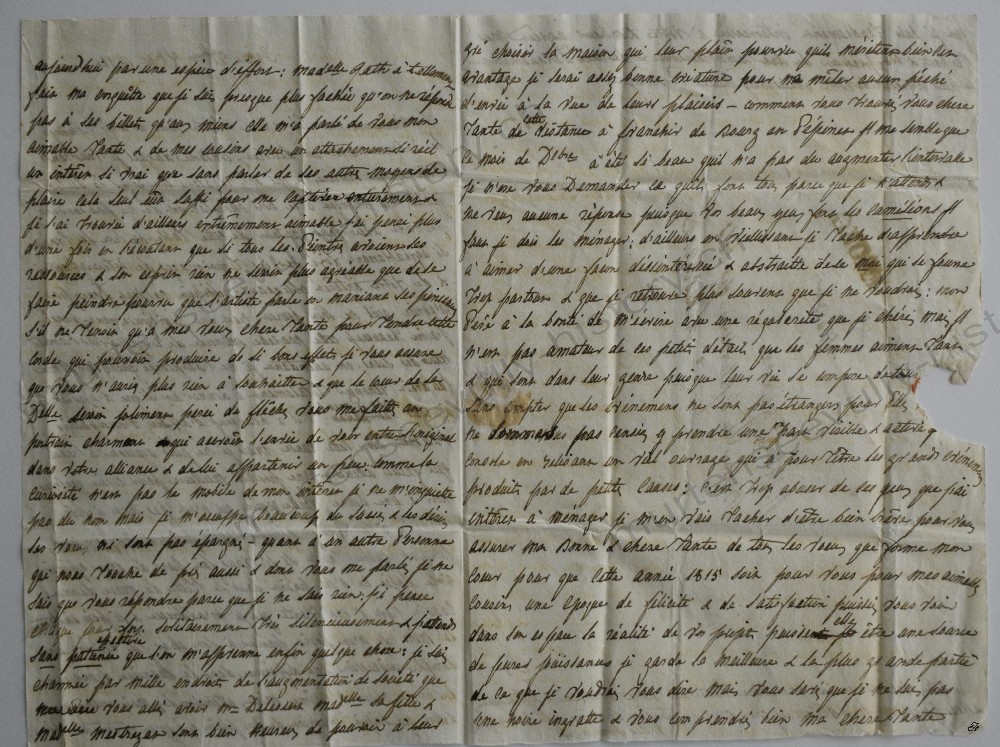 aujourd'hui par une espèce d'effort : madelle Rath a tellement
fait ma conquête que je suis presque plus fachée qu'on ne réponde
pas à ses billets qu'aux miens elle m'a parlé de vous mon
aimable Tante & de mes cousins avec un attachement si réel
un intérêt si vrai que sans parler de ses autres moyens de
plaire cela seul eut suffi pour me captiver entièrement &
je l'ai trouvée d'ailleurs extrêmement aimable j'ai pensé plus
d'une fois en l'écoutant que si tous les Peintres avoient ses
ressources & son esprit rien ne seroit plus agréable que de se
faire peindre pourvu que l'artiste parle en maniant ses pinceaux
s'il ne tenoit qu'a mes voeux chere Tante pour tendre cette
corde qui pourroit produire de si bons effets je vous assure
que vous n'auriez plus rien à souhaiter & que le coeur de la
Delle seroit joliment percé de flêches vous me faites un
portrait charmant qui accroit l'envie de voir entrer l'original
dans votre alliance & de lui appartenir un peu comme la
curiosité n'est pas le mobile de mon intérêt je ne m'inquiette
pas du nom mais je m'occupe beaucoup du succès & les désirs
les voeux ni sont pas épargnés - quant à un autre Personne
qui nous touche de près aussi & dont vous me parlez je ne
sais que vous répondre parce que je ne sais rien. j'y pense
chaque jour solitairement très silencieusement & j'attends
sans patience que l'on m'apprenne enfin quelque chose : je suis
charmée par mille endroits de l'augmentation de société que
vous allez avoir Mme Delessert madelle sa fille &
madelle mestrezat sont bien heureux de pouvoir à leur
gré choisir la maison qui leur plait pourvu quils méritent bien cet
avantage je serai assez bonne créature pour ne mêler aucun péché
d'envie à la vue de leurs plaisirs - comment vous trouvez vous chere
Tante de cette distance à franchir de Bourg en Pépinet il me semble que
ce mois de Dbre a été si beau quil n'a pas du augmenter l'intervalle
je n'ose vous Demander ce quils font tous parce que je n'attends &
ne veux aucune réponse puisque vos beaux yeux font les camélions il
faut je dois les ménager ; d'ailleurs en vieillissant je tache d'apprendre
à aimer d'une façon désintéressée & abstraite de le moi qui se fourre
trop partout & que je retrouve plus souvent que je ne voudrais : mon
Père à la bonté de m'écrire avec une régularité que je cheris mais il
n'est pas amateur de ces petits détails que les femmes aiment tant
& qui sont dans leur genre puisque leur vie se compose de tous
sans compter que les événemens ne sont pas étrangers pour Elles
ne sommes nous pas censées y prendre une part
encore en lisant un bel ouvrage qui a pour titre les grands événemens
produits par de petites causes : c'est trop abuser de ces yeux que j'ai
intérêt à ménager je m'en vais tacher d'être bien brève pour vous
assurer ma Bonne & chere Tante de tous les voeux que forme mon
coeur pour que cette année 1815 soit pour vous pour mes aimables
cousins une époque de félicité & de satisfaction puissiez vous voir
dans son espace la réalité de vos projets, puisse elle être une source
de pures jouissances je garde la meilleure & la plus grande partie
de ce que je voudrais vous dire mais vous savez que je ne suis pas
une nièce ingratte & vous comprendrez bien ma chere Tante